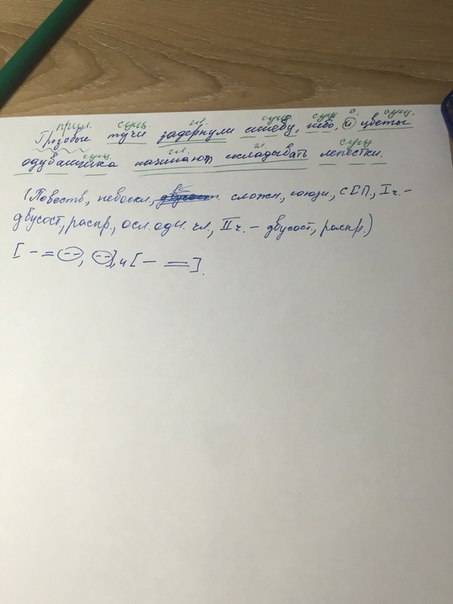 прил. сущ. гл. сущ. сущ. с. сущ.
Грозовые тучи задернули синеву, небо, и цветы
сущ. гл. гл. сущ.
одуванчика начинают складывать лепестки.
(Повеств, невоскл, сложн, союзн, ССП, I ч. -
двусост, распр, осл. одн. чл, II ч. - двусост, распр.)
[ - = , ], и [ - = ].